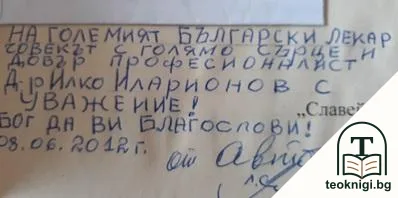 НА ГОЛЕМИЯТ БЪЛГАРСКИ ЛЕКАР
ЧОВЕКЪТ С ГОЛЯМО СЪРЦЕ И
ДОБЪР ПРОФЕСИОНАЛИСТ
Д-Р ИЛКО ИЛАРИОНОВ С
УВАЖЕНИЕ!
„Славей
БОГ ДА ВИ БЛАГОСЛОВИ!
08.06.2012 г.
от
T
teoknigi.bg